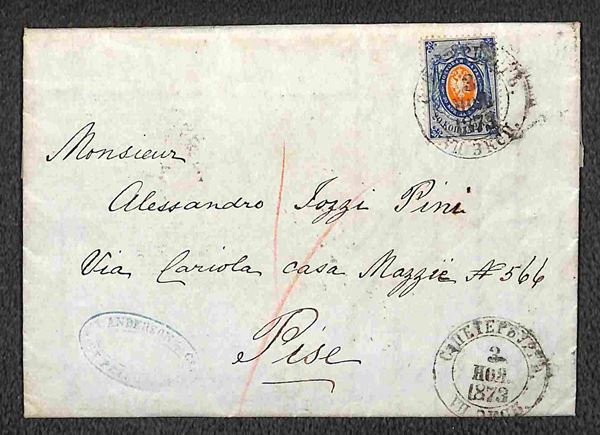 Monsieur
Alessandro Tozzi Pini
Via Cariola casa Mazzié N 566
Pise
ANDERSON & Co
С.ПЕТЕРБУРГЪ
2
НОЯ.
1873
ЭКСП.
2
НОЯ
1873
ЭКСП.